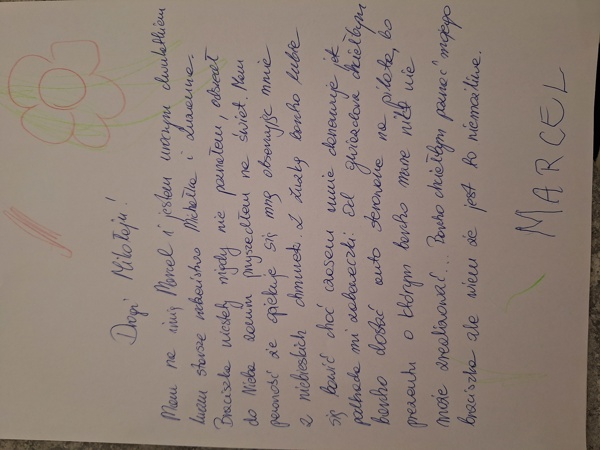 Drogi Mikołaju!
Mam na imię Marcel i jestem uroczym dwulatkiem
mam starsze rodzeństwo Michałka i Zuzanna.
Braciszka niestety nigdy nie poznałem, odszedł
do Nieba zanim przyszedłem na świat. Mam
pewność że opiekuje się mną obserwując mnie
z niebieskich chmurek. Z Zuzką bardzo lubię
się bawić choć czasem mnie denerwuje jak
podkrada mi zabaweczki. Od gwiazdora chciałbym
bardzo dostać auto sterowane na pilota, bo
prezentu o którym bardzo marzę nikt nie
może zrealizować... Bardzo chciałbym poznać mojego
braciszka ale wiem że jest to niemożliwe.
MARCEL